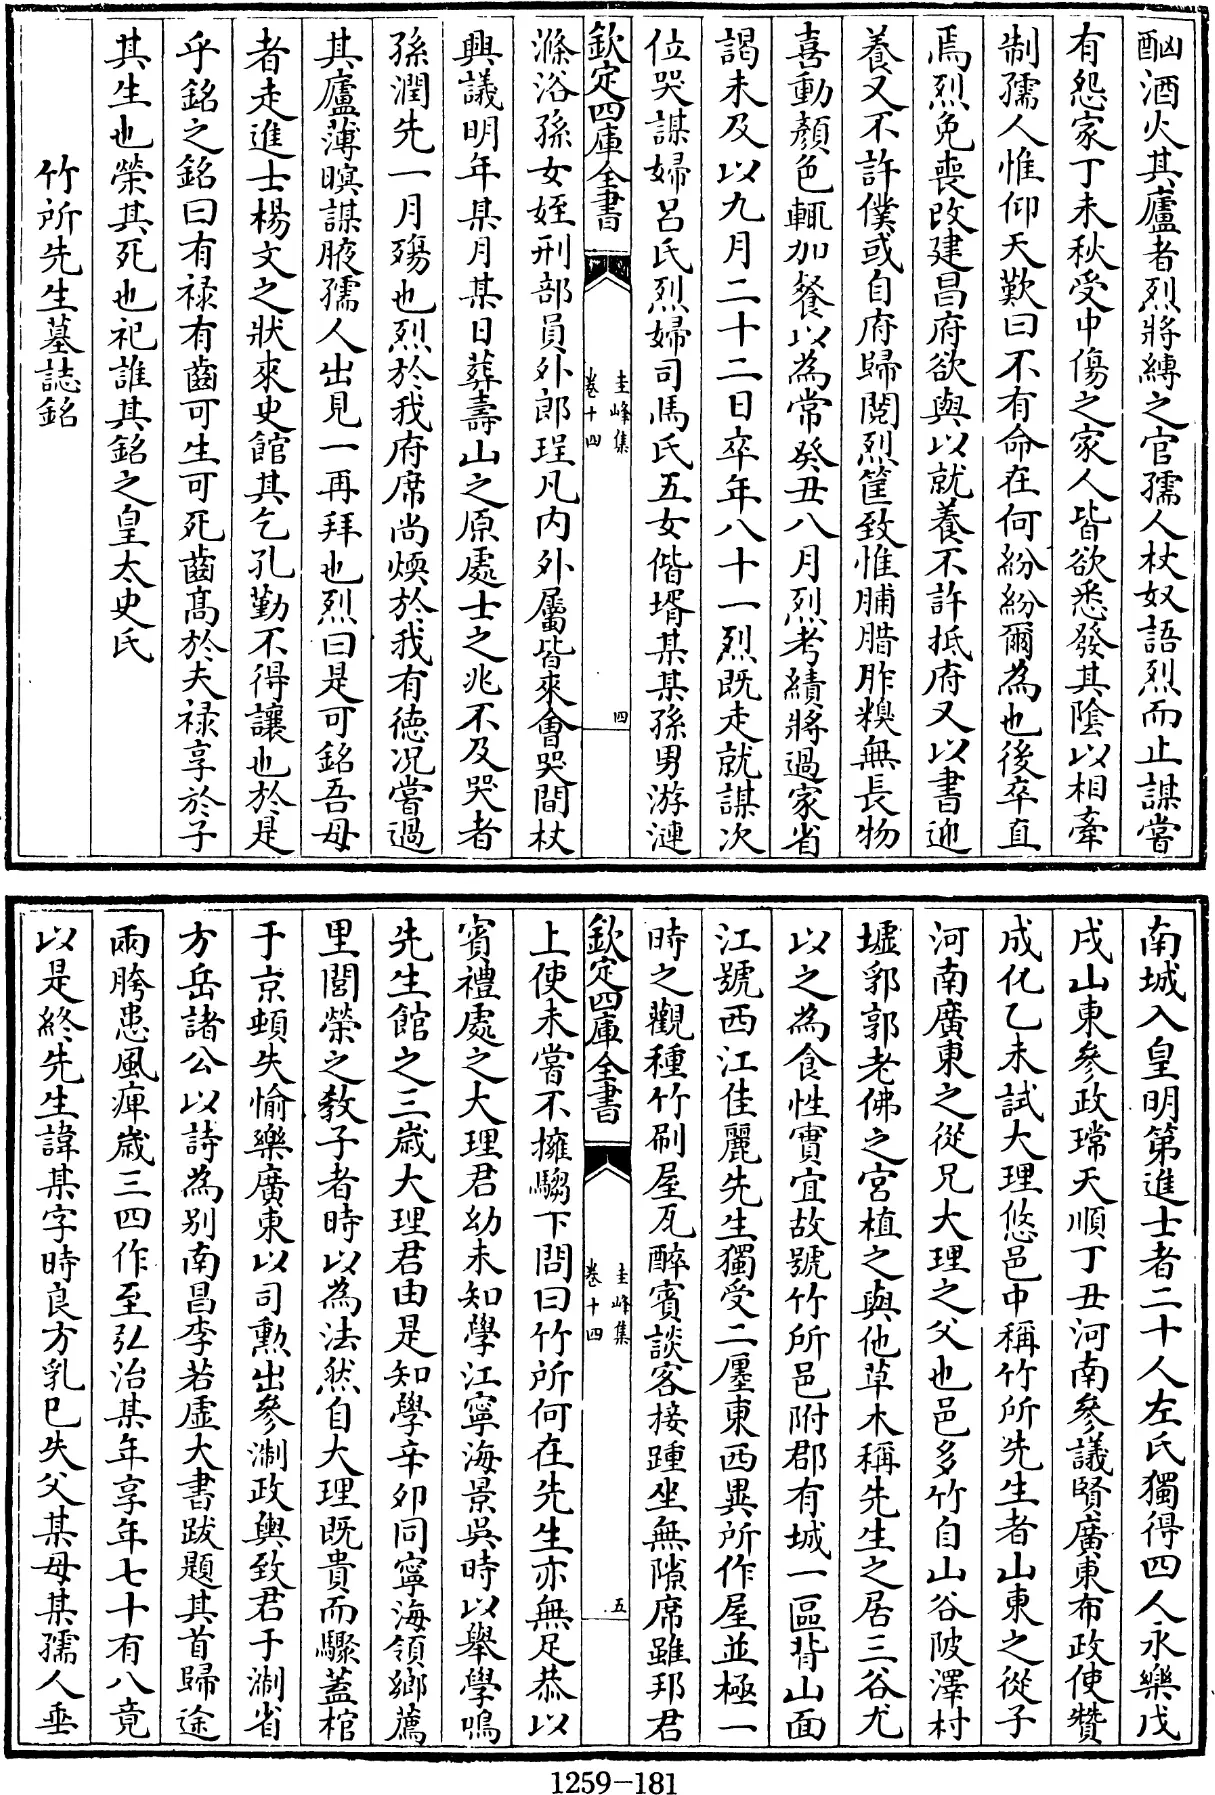 酗酒火其廬者烈將縛之官孺人杖奴語烈而止謀嘗
有怨家丁未秋受中傷之家人皆欲悉發其陰以相牽
制孺人惟仰天歎曰不有命在何紛紛爾為也後卒直
焉烈免喪改建昌府欲與以就養不許抵府又以書迎
養又不許僕或自府歸閱烈筐致惟脯腊胙糗無長物
喜動顏色輒加餐以為常癸丑八月烈考績將過家省
謁未及以九月二十二日卒年八十一烈既走就謀次
位哭謀婦呂氏烈婦司馬氏五女偕壻某某孫男游漣
欽定四庫全書
圭峰集
卷十四
四
滌浴孫女姪刑部員外郎珵凡内外屬皆來會哭間杖
興議明年某月某日葬壽山之原處士之兆不及哭者
孫潤先一月殤也烈於我府席尚煗於我有德况嘗過
其廬薄暝謀腋孺人出見一再拜也烈曰是可銘吾母
者走進士楊文之狀來史館其乞孔勤不得讓也於是
乎銘之銘曰有禄有齒可生可死齒高於夫禄享於子
其生也榮其死也祀誰其銘之皇太史氏
竹所先生墓誌銘
南城入皇明第進士者二十人左氏獨得四人永樂戊
戌山東參政瑺天順丁丑河南參議賢廣東布政使贊
成化乙未試大理悠邑中稱竹所先生者山東之從子
河南廣東之從兄大理之父也邑多竹自山谷陂澤村
墟郭郭老佛之宮植之與他草木稱先生之居三谷尤
以之為食性實宜故號竹所邑附郡有城一區背山面
江號西江佳麗先生獨受二廛東西異所作屋並極一
時之觀種竹刷屋瓦醉賓談客接踵坐無隙席雖邦君
欽定四庫全書
圭峰集
卷十四
五
上使未嘗不擁騶下問曰竹所何在先生亦無足恭以
賓禮處之大理君幼未知學江寧海景吳時以舉學鳴
先生館之三嵗大理君由是知學辛卯同寧海領鄉薦
里閭榮之教子者時以為法然自大理既貴而驟蓋棺
于京頓失愉樂廣東以司勲出參淛政輿致君于淛省
方岳諸公以詩為别南昌李若虛大書跋題其首歸途
兩胯患風痺嵗三四作至弘治某年享年七十有八竟
以是終先生諱某字時良方乳巳失父某母某孺人垂
1259-181